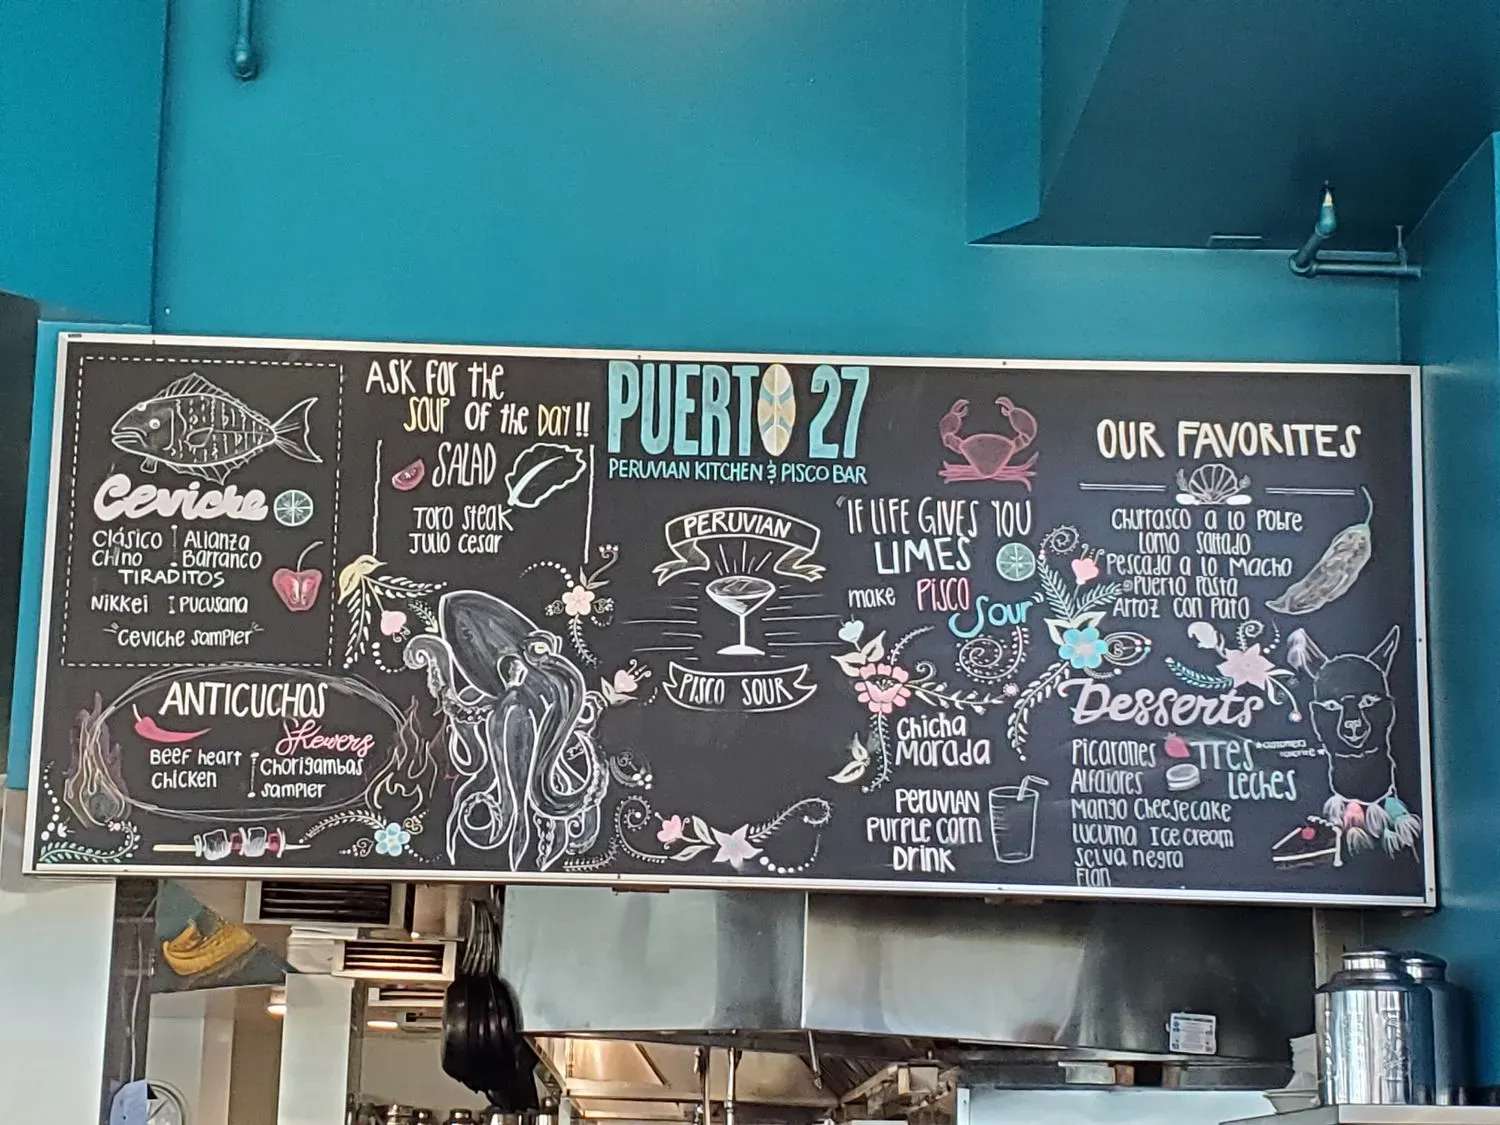 Ceviche
Clásico Alianza
Chino Barranco
TIRADITOS
Nikkei Pucusana
"Ceviche sampler"
ANTICUCHOS
Skewers
Beef heart Chorigambas
Chicken sampler
ASK for the
SOUP of the DAY!!
SALAD
Toro steak
Julio Cesar
PUERTO 27
PERUVIAN KITCHEN & PISCO BAR
PERUVIAN
PISCO SOUR
"IF LIFE GIVES YOU
LIMES
make PISCO
Sour"
Chicha
Morada
PERUVIAN
PURPLE CORN
DRINK
OUR FAVORITES
Churrasco a lo Pobre
Lomo Saltado
Pescado a lo Macho
Puerto Pasta
Arroz con Pato
Desserts
Picarones TRES
Alfajores LECHES
Mango Cheesecake
Lucuma Ice cream
Selva negra
Flan